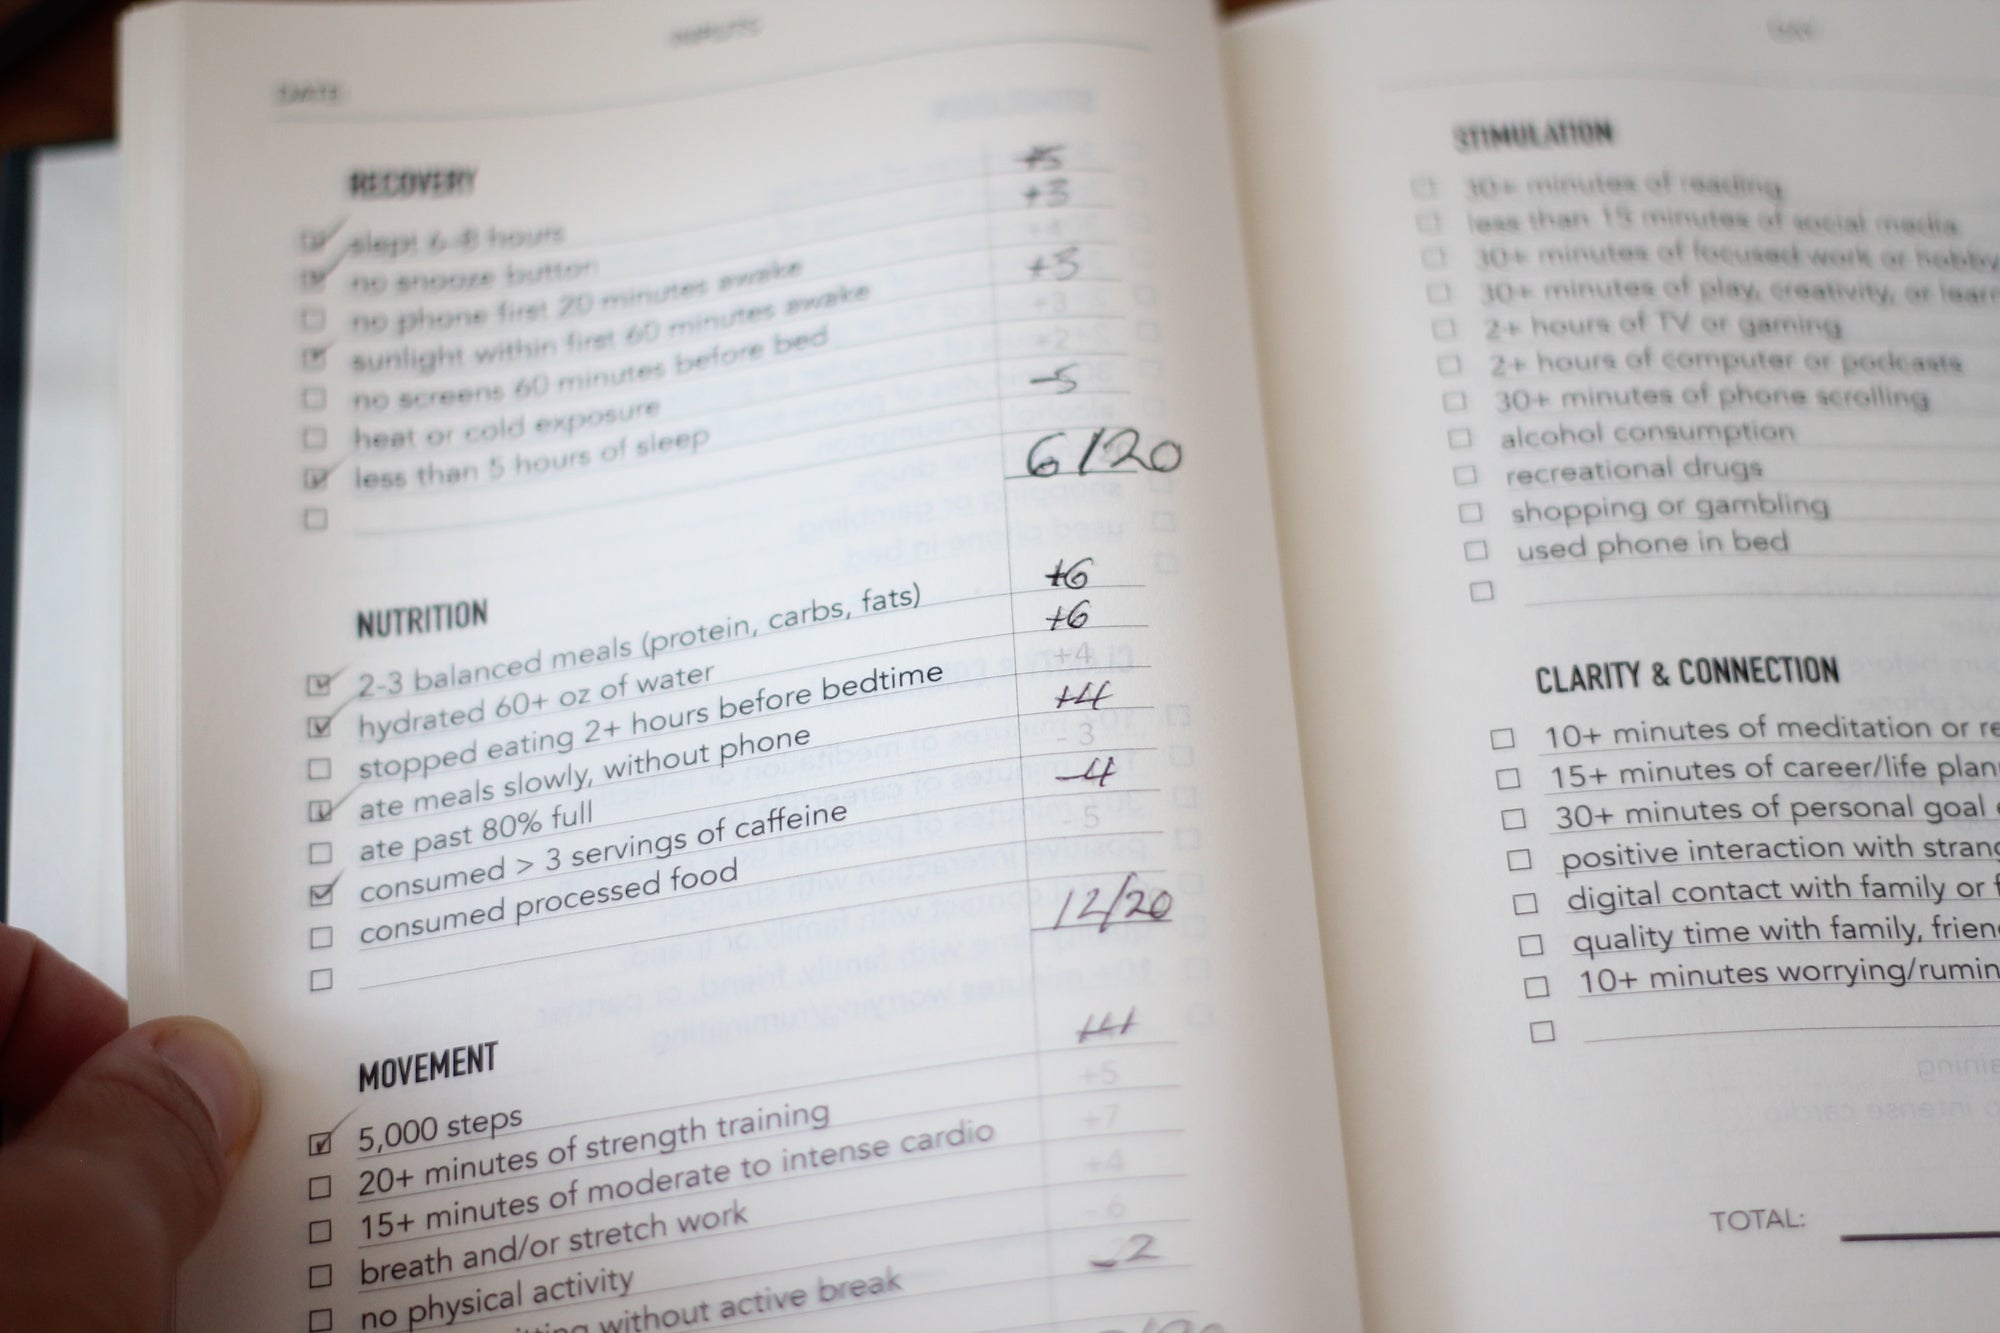 DATE
RECOVERY
slept 6-8 hours +5
no snooze button +3
no phone first 20 minutes awake
sunlight within first 60 minutes awake +3
no screens 60 minutes before bed +3
heat or cold exposure +2
less than 5 hours of sleep -5
6/20
NUTRITION
2-3 balanced meals (protein, carbs, fats) +6
hydrated 60+ oz of water +6
stopped eating 2+ hours before bedtime +4
ate meals slowly, without phone +4
ate past 80% full - 3
consumed > 3 servings of caffeine -4
consumed processed food - 5
12/20
MOVEMENT
5,000 steps +4
20+ minutes of strength training +5
15+ minutes of moderate to intense cardio +7
breath and/or stretch work +4
no physical activity - 6
without active break -2
STIMULATION
30+ minutes of reading
less than 15 minutes of social media
30+ minutes of focused work or hobby
30+ minutes of play, creativity, or
2+ hours of TV or gaming
2+ hours of computer or podcasts
30+ minutes of phone scrolling
alcohol consumption
recreational drugs
shopping or gambling
used phone in bed
CLARITY & CONNECTION
10+ minutes of meditation or
15+ minutes of career/life
30+ minutes of personal goal
positive interaction with
digital contact with family or
quality time with family,
10+ minutes
TOTAL: